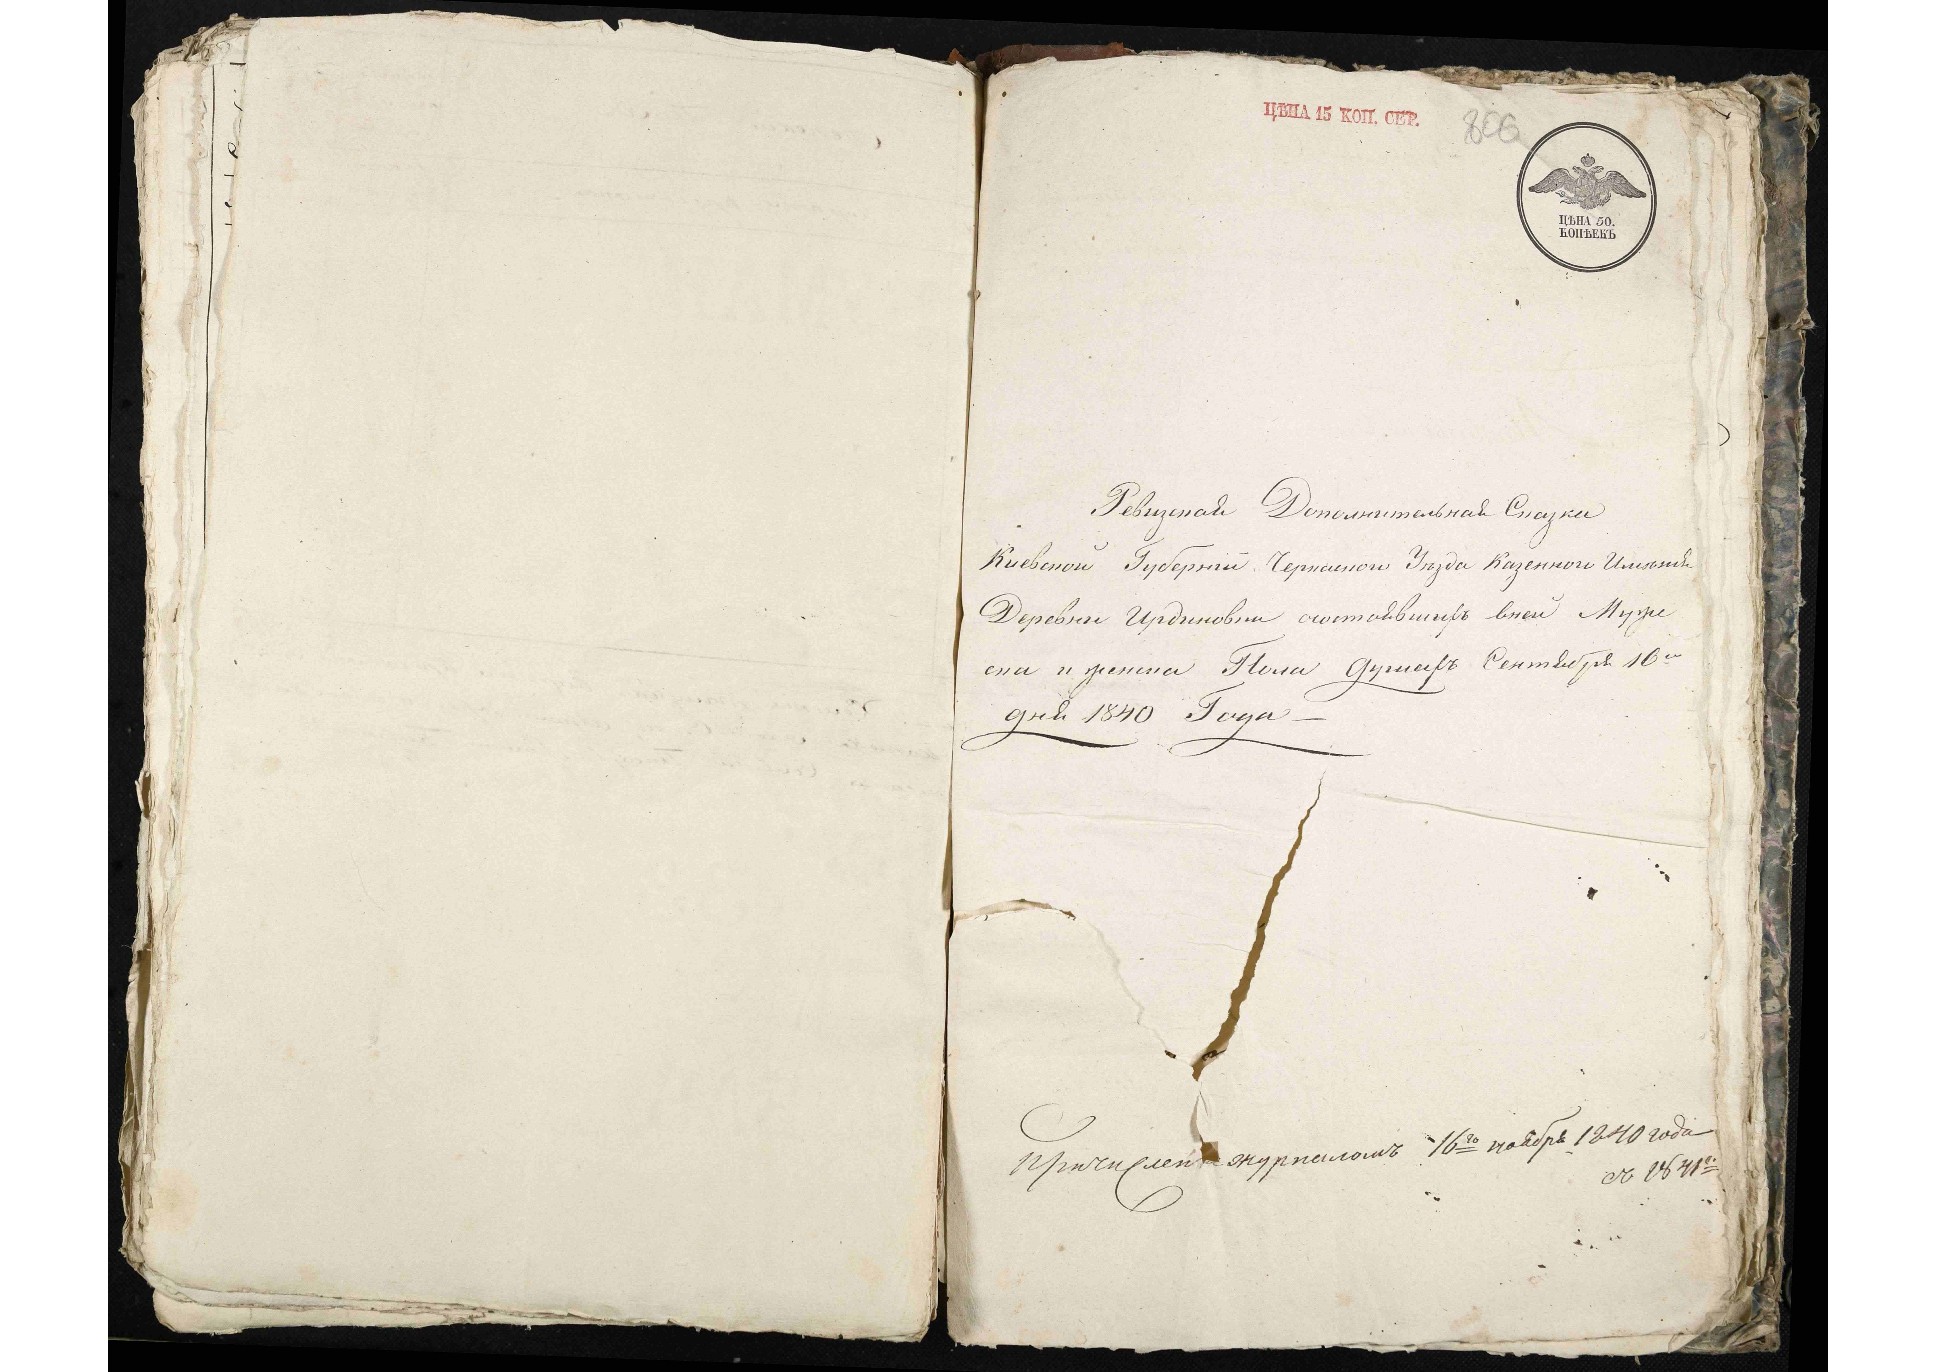 ЦѢНА 15 КОП. СЕР.
806
ЦѢНА 50.
КОПѢЕКЪ
Ревизская Дополнительная Сказка
Киевской Губернїи Черкаского Уѣзда Казенного Имѣния
Деревни Ирдиновки состоявшихъ вней Муже
ска и женска Пола душахъ Сентября 16го
дня 1840 Года —
Причислен журналомъ 16го ноября 1840 года
съ 1841го